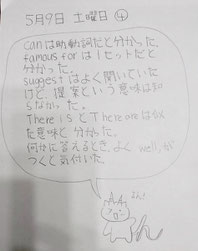 5月9日 土曜日 ④
canは助動詞だと分かった。
famous forは1セットだと
分かった。
suggestはよく聞いていた
けど、提案という意味は知
らなかった。
There isとThere areは似
た意味と分かった。
何かに答えるとき、よくwell,が
つくと気付いた。